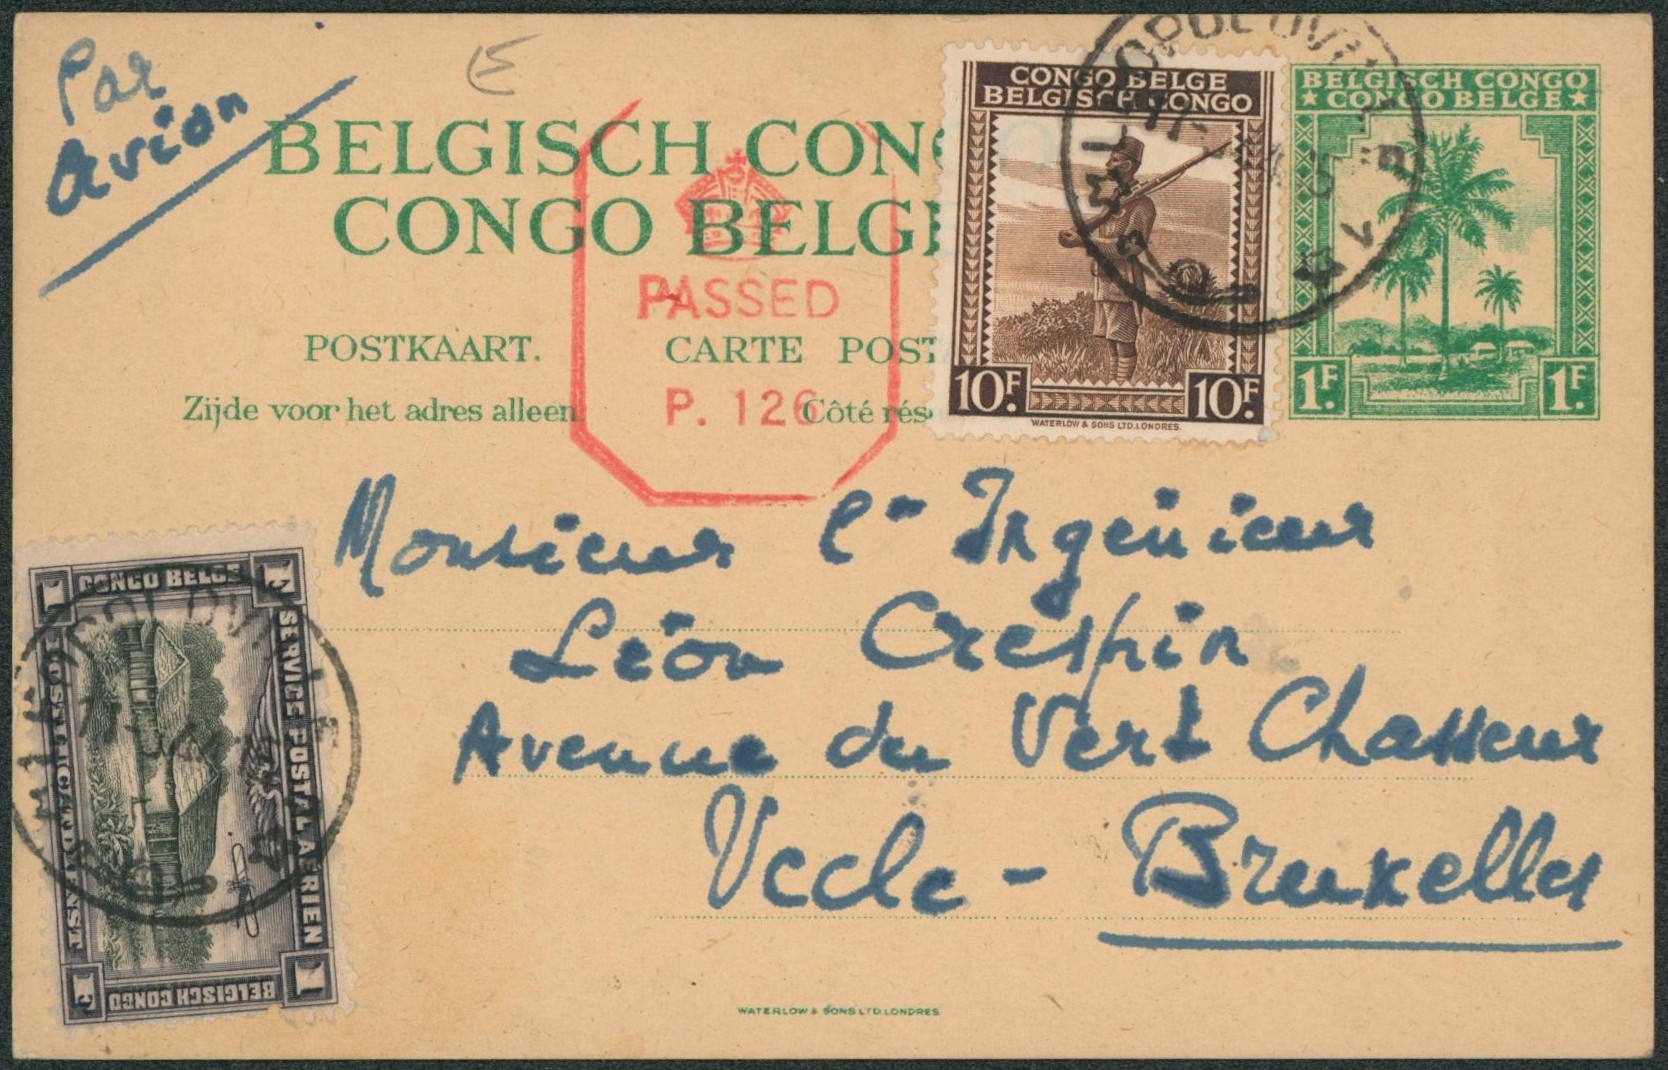 Par
Avion
BELGISCH CON
CONGO BELGE
PASSED
P. 126
POSTKAART. CARTE POST
Zijde voor het adres alleen. Côté rés
CONGO BELGE
BELGISCH CONGO
10F. 10F.
WATERLOW & SONS LTD. LONDRES.
BELGISCH CONGO
★ CONGO BELGE ★
1F. 1F.
LEOPOLDVILLE
Monsieur l' Ingénieur
Léon Crespin
Avenue du Vert Chasseur
Uccle - Bruxelles
1 CONGO BELGE F
SERVICE POSTAL AERIEN
BELGISCH CONGO
1 F
WATERLOW & SONS LTD. LONDRES.